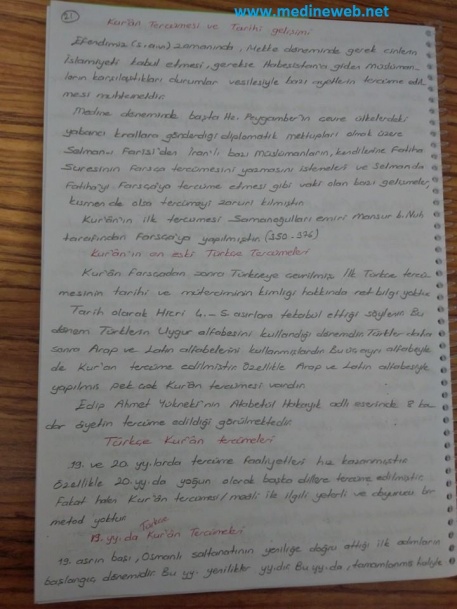 www.medineweb.net
21
Kur'ân Tercümesi ve Tarihi gelişimi
Efendimiz (s.a.v) zamanında, Mekke döneminde gerek cinlerin
İslamiyeti kabul etmesi, gerekse Habeşistan'a giden Müslüman-
ların karşılaştıkları durumlar vesilesiyle bazı ayetlerin tercüme edil-
mesi muhtemeldir.
Medine döneminde başta Hz. Peygamber'in çevre ülkelerdeki
yabancı krallara gönderdiği diplomatik mektupları olmak üzere
Selman-ı Farisi'den İran'lı bazı müslümanların, kendilerine Fatiha
Suresinin Farsça tercümesini yazmasını istemeleri ve Selman'da
Fatiha'yı Farsça'ya tercüme etmesi gibi vaki olan bazı gelişmeler,
kısmen de olsa tercümeyi zaruri kılmıştır.
Kur'ân'ın ilk tercümesi Samanoğulları emiri Mansur b. Nuh
tarafından Farsça'ya yapılmıştır. (350-376)
Kur'ân'ın en eski Türkçe Tercümeleri
Kur'ân Farsçadan sonra Türkçeye çevrilmiş. İlk Türkçe tercü-
mesinin tarihi ve mütercimin kimliği hakkında net bilgi yoktur.
Tarih olarak Hicri 4. - 5. asırlara tekabül ettiği söylenir. Bu
dönem Türklerin Uygur alfabesini kullandığı dönemdir. Türkler daha
sonra Arap ve Latin alfabelerini kullanmışlardır. Bu üç ayrı alfabeyle
de Kur'an tercüme edilmiştir. Özellikle Arap ve Latin alfabesiyle
yapılmış pek çok Kur'ân tercümesi vardır.
Edip Ahmet Yükneki'nin Atabetül Hakayık adlı eserinde 8 ka-
dar âyetin tercüme edildiği görülmektedir.
Türkçe Kur'ân tercümeleri
19. ve 20. yy.larda tercüme faaliyetleri hız kazanmıştır.
Özellikle 20. yy.da yoğun olarak başka dillere tercüme edilmiştir.
Fakat halen Kur'ân tercümesi / meali ile ilgili yeterli ve doyurucu bir
metod yoktur.
19. yy.da Türkçe Kur'ân Tercümeleri
19. asrın başı, Osmanlı saltanatının yeniliğe doğru attığı ilk adımların
başlangıç dönemidir. Bu yy. yenilikler yy.dır. Bu yy.da, tamamlanmış haliyle